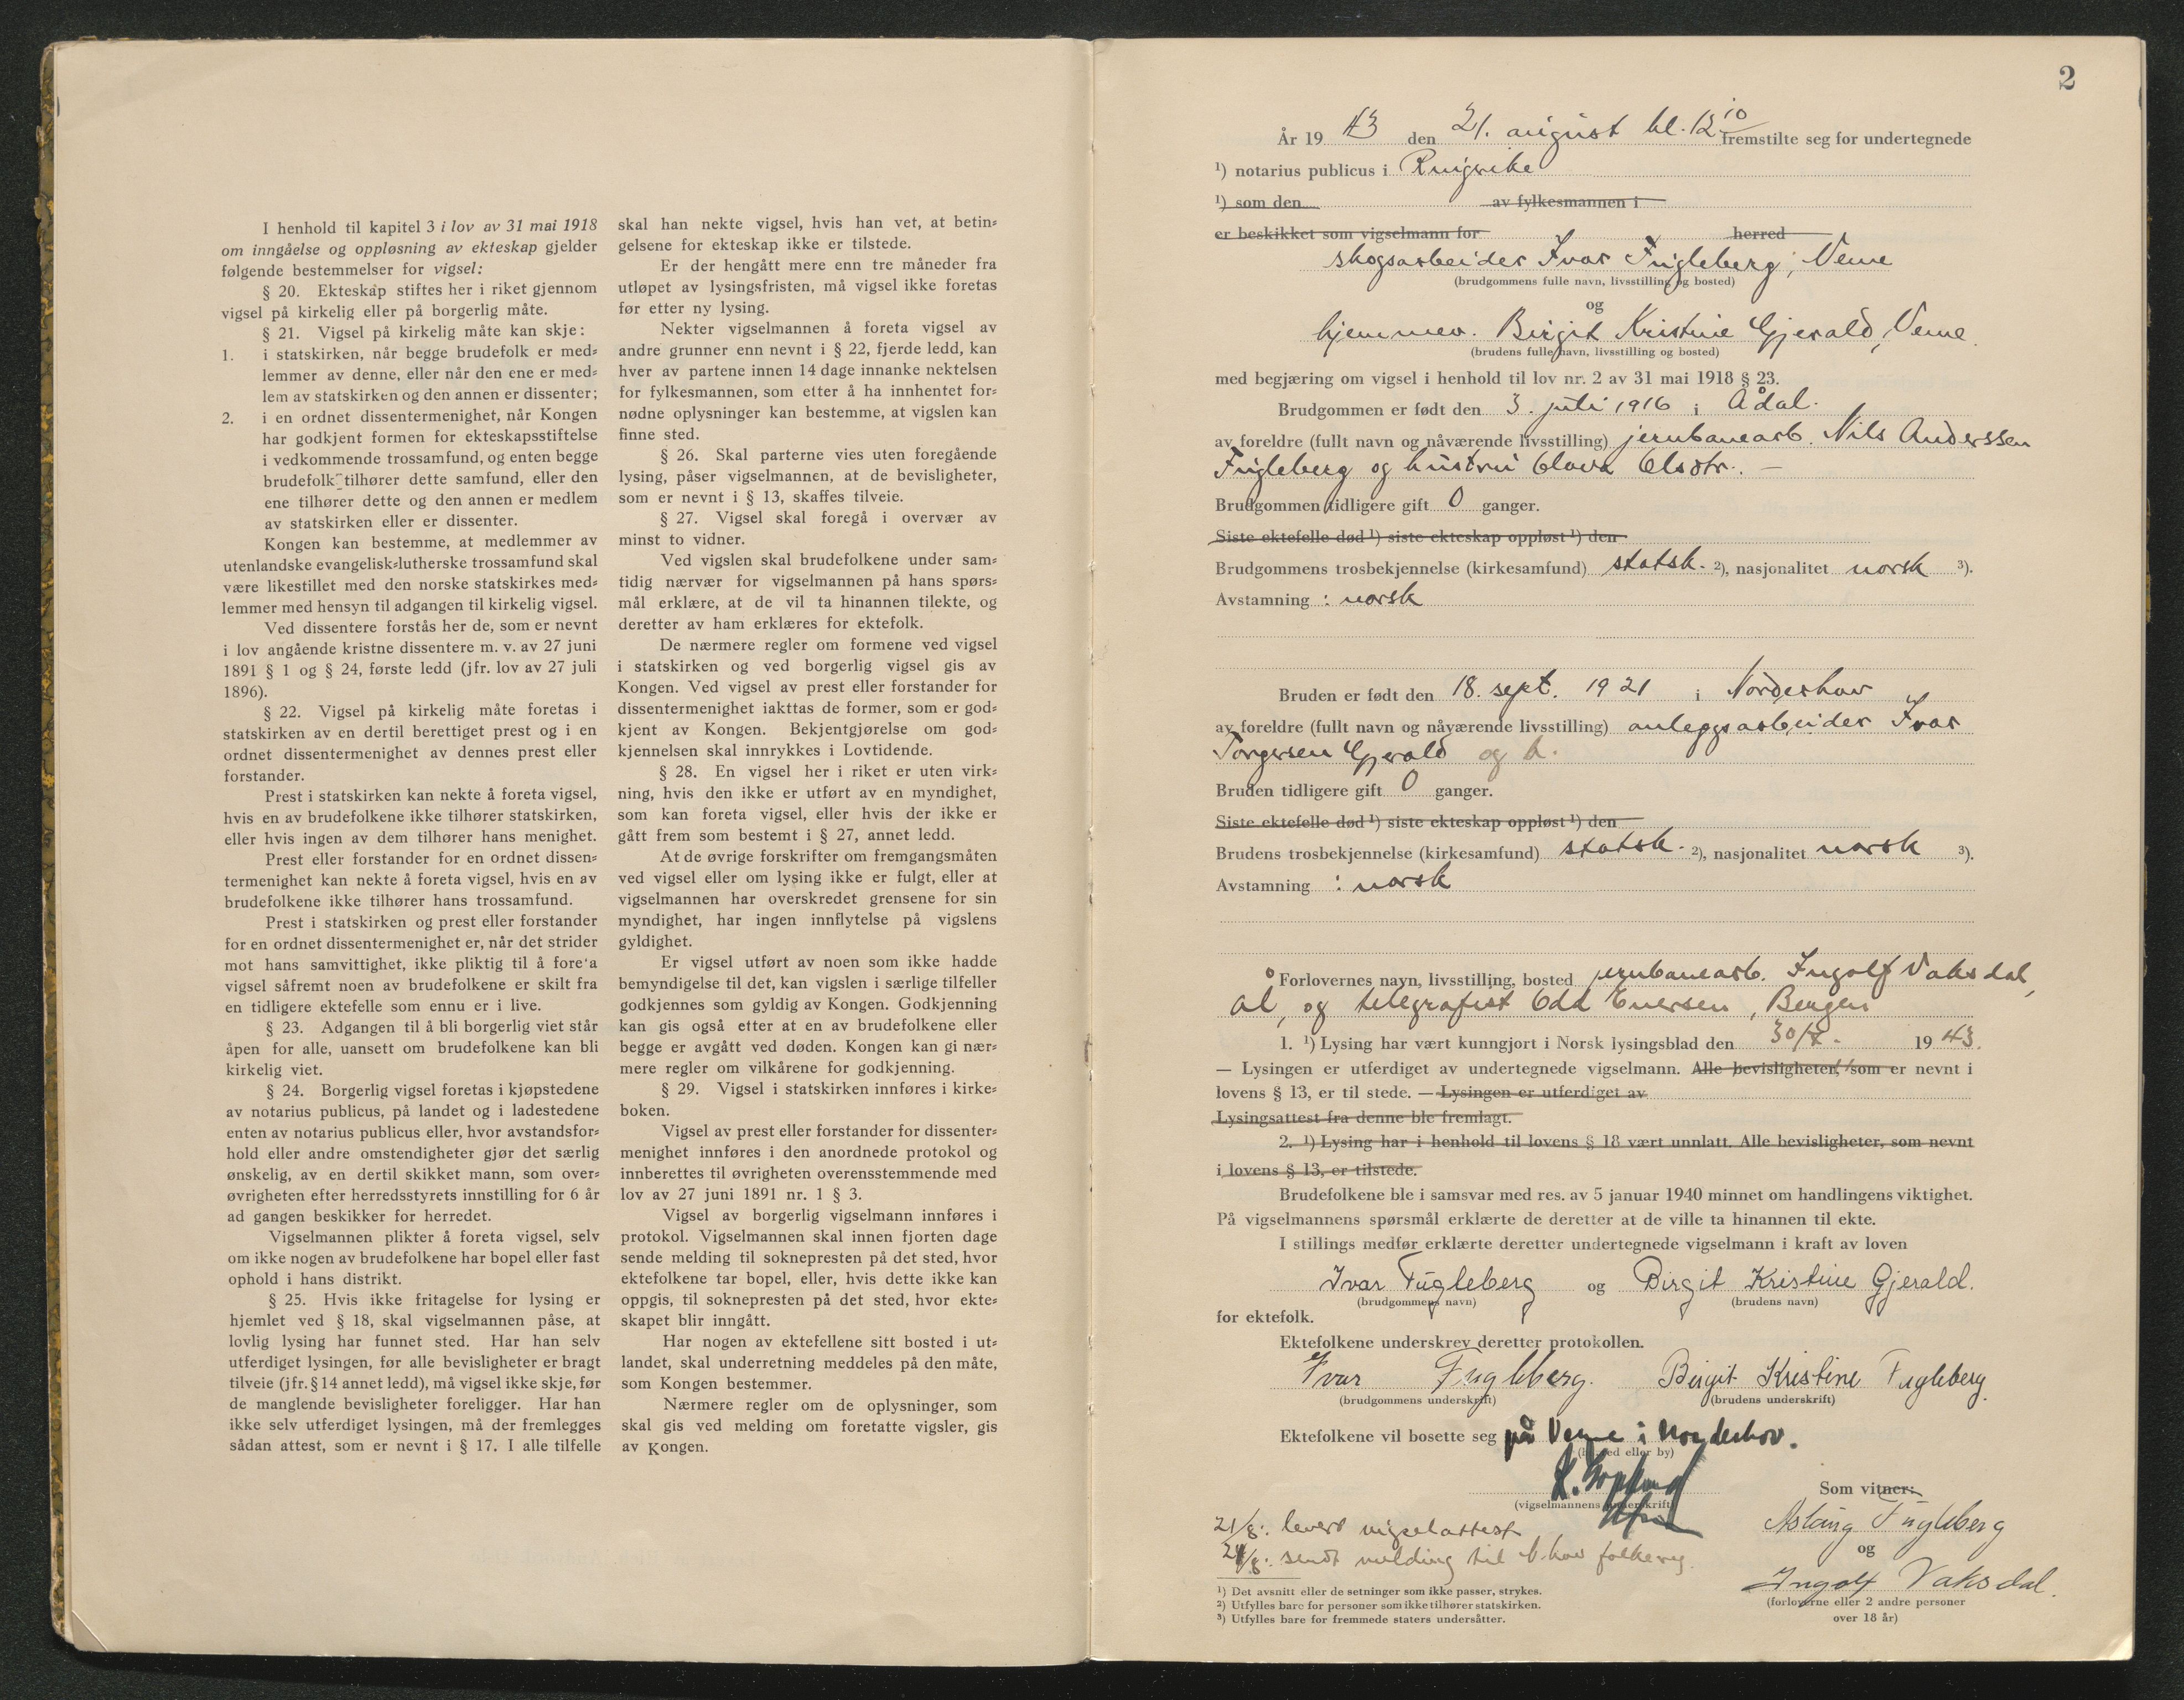 I henhold til kapitel 3 i lov av 31 mai 1918
om inngåelse og oppløsning av ekteskap gjelder
følgende bestemmelser for vigsel:
§ 20. Ekteskap stiftes her i riket gjennom
vigsel på kirkelig eller på borgerlig måte.
§ 21. Vigsel på kirkelig måte kan skje:
1. i statskirken, når begge brudefolk er med=
lemmer av denne, eller når den ene er med=
lem av statskirken og den annen er dissenter;
2. i en ordnet dissentermenighet, når Kongen
har godkjent formen for ekteskapsstiftelse
i vedkommende trossamfund, og enten begge
brudefolk tilhører dette samfund, eller den
ene tilhører dette og den annen er medlem
av statskirken eller er dissenter.
Kongen kan bestemme, at medlemmer av
utenlandske evangelisk=lutherske trossamfund skal
være likestillet med den norske statskirkes med=
lemmer med hensyn til adgangen til kirkelig vigsel.
Ved dissentere forstås her de, som er nevnt
i lov angående kristne dissentere m. v. av 27 juni
1891 § 1 og § 24, første ledd (jfr. lov av 27 juli
1896).
§ 22. Vigsel på kirkelig måte foretas i
statskirken av en dertil berettiget prest og i en
ordnet dissentermenighet av dennes prest eller
forstander.
Prest i statskirken kan nekte å foreta vigsel,
hvis en av brudefolkene ikke tilhører statskirken,
eller hvis ingen av dem tilhører hans menighet.
Prest eller forstander for en ordnet dissen=
termenighet kan nekte å foreta vigsel, hvis en av
brudefolkene ikke tilhører hans trossamfund.
Prest i statskirken og prest eller forstander
for en ordnet dissentermenighet er, når det strider
mot hans samvittighet, ikke pliktig til å fore'a
vigsel såfremt noen av brudefolkene er skilt fra
en tidligere ektefelle som ennu er i live.
§ 23. Adgangen til å bli borgerlig viet står
åpen for alle, uansett om brudefolkene kan bli
kirkelig viet.
§ 24. Borgerlig vigsel foretas i kjøpstedene
av notarius publicus, på landet og i ladestedene
enten av notarius publicus eller, hvor avstandsfor=
hold eller andre omstendigheter gjør det særlig
ønskelig, av en dertil skikket mann, som over=
øvrigheten efter herredsstyrets innstilling for 6 år
ad gangen beskikker for herredet.
Vigselmannen plikter å foreta vigsel, selv
om ikke nogen av brudefolkene har bopel eller fast
ophold i hans distrikt.
§ 25. Hvis ikke fritagelse for lysing er
hjemlet ved § 18, skal vigselmannen påse, at
lovlig lysing har funnet sted. Har han selv
utferdiget lysingen, før alle bevisligheter er bragt
tilveie (jfr. § 14 annet ledd), må vigsel ikke skje, før
de manglende bevisligheter foreligger. Har han
ikke selv utferdiget lysingen, må der fremlegges
sådan attest, som er nevnt i § 17. I alle tilfelle
skal han nekte vigsel, hvis han vet, at betin=
gelsene for ekteskap ikke er tilstede.
Er der hengått mere enn tre måneder fra
utløpet av lysingsfristen, må vigsel ikke foretas
før etter ny lysing.
Nekter vigselmannen å foreta vigsel av
andre grunner enn nevnt i § 22, fjerde ledd, kan
hver av partene innen 14 dage innanke nektelsen
for fylkesmannen, som etter å ha innhentet for=
nødne oplysninger kan bestemme, at vigslen kan
finne sted.
§ 26. Skal parterne vies uten foregående
lysing, påser vigselmannen, at de bevisligheter,
som er nevnt i § 13, skaffes tilveie.
§ 27. Vigsel skal foregå i overvær av
minst to vidner.
Ved vigslen skal brudefolkene under sam=
tidig nærvær for vigselmannen på hans spørs=
mål erklære, at de vil ta hinannen tilekte, og
deretter av ham erklæres for ektefolk.
De nærmere regler om formene ved vigsel
i statskirken og ved borgerlig vigsel gis av
Kongen. Ved vigsel av prest eller forstander for
dissentermenighet iakttas de former, som er god=
kjent av Kongen. Bekjentgjørelse om god=
kjennelsen skal innrykkes i Lovtidende.
§ 28. En vigsel her i riket er uten virk=
ning, hvis den ikke er utført av en myndighet,
som kan foreta vigsel, eller hvis der ikke er
gått frem som bestemt i § 27, annet ledd.
At de øvrige forskrifter om fremgangsmåten
ved vigsel eller om lysing ikke er fulgt, eller at
vigselmannen har overskredet grensene for sin
myndighet, har ingen innflytelse på vigslens
gyldighet.
Er vigsel utført av noen som ikke hadde
bemyndigelse til det, kan vigslen i særlige tilfeller
godkjennes som gyldig av Kongen. Godkjenning
kan gis også etter at en av brudefolkene eller
begge er avgått ved døden. Kongen kan gi nær=
mere regler om vilkårene for godkjenning.
§ 29. Vigsel i statskirken innføres i kirke=
boken.
Vigsel av prest eller forstander for dissenter=
menighet innføres i den anordnede protokol og
innberettes til øvrigheten overensstemmende med
lov av 27 juni 1891 nr. 1 § 3.
Vigsel av borgerlig vigselmann innføres i
protokol. Vigselmannen skal innen fjorten dage
sende melding til soknepresten på det sted, hvor
ektefolkene tar bopel, eller, hvis dette ikke kan
oppgis, til soknepresten på det sted, hvor ekte=
skapet blir inngått.
Har nogen av ektefellene sitt bosted i ut=
landet, skal underretning meddeles på den måte,
som Kongen bestemmer.
Nærmere regler om de oplysninger, som
skal gis ved melding om foretatte vigsler, gis
av Kongen.
2
År 19 43 den 21. august kl. 12 10 fremstilte seg for undertegnede
¹) notarius publicus i Ringerike
¹) som den av fylkesmannen i
er beskikket som vigselmann for herred
skogsarbeider Ivar Fugleberg, Veme
(brudgommens fulle navn, livsstilling og bosted)
og
hjemmev. Birgit Kristine Gjerald, Veme.
(brudens fulle navn, livsstilling og bosted)
med begjæring om vigsel i henhold til lov nr. 2 av 31 mai 1918 § 23.
Brudgommen er født den 3. juli 1916 i Ådal.
av foreldre (fullt navn og nåværende livsstilling) jernbanearb. Nils Anderssen
Fugleberg og hustru Olava Olsdtr. –
Brudgommen tidligere gift 0 ganger.
Siste ektefelle død ¹) siste ekteskap oppløst ¹) den
Brudgommens trosbekjennelse (kirkesamfund) statsk. ²), nasjonalitet norsk ³).
Avstamning : norsk
Bruden er født den 18. sept. 1921 i Norderhov
av foreldre (fullt navn og nåværende livsstilling) anleggsarbeider Ivar
Torgersen Gjerald og h.
Bruden tidligere gift 0 ganger.
Siste ektefelle død ¹) siste ekteskap oppløst ¹) den
Brudens trosbekjennelse (kirkesamfund) statsk. ²), nasjonalitet norsk ³).
Avstamning : norsk
Forlovernes navn, livsstilling, bosted jernbanearb. Ingolf Vaksdal,
Ål, og telegrafist Odd Enersen, Bergen
1. ¹) Lysing har vært kunngjort i Norsk lysingsblad den 30/7. 19 43.
— Lysingen er utferdiget av undertegnede vigselmann. Alle bevisligheter, som er nevnt i
lovens § 13, er til stede. — Lysingen er utferdiget av
Lysingsattest fra denne ble fremlagt.
2. ¹) Lysing har i henhold til lovens § 18 vært unnlatt. Alle bevisligheter, som nevnt
i lovens § 13, er tilstede.
Brudefolkene ble i samsvar med res. av 5 januar 1940 minnet om handlingens viktighet.
På vigselmannens spørsmål erklærte de deretter at de ville ta hinannen til ekte.
I stillings medfør erklærte deretter undertegnede vigselmann i kraft av loven
Ivar Fugleberg og Birgit Kristine Gjerald.
(brudgommens navn) (brudens navn)
for ektefolk.
Ektefolkene underskrev deretter protokollen.
Ivar Fugleberg. Birgit Kristine Fugleberg.
(brudgommens underskrift) (brudens underskrift)
Ektefolkene vil bosette seg på Veme i Norderhov.
(herred eller by)
(vigselmannens underskrift)
Som vitner:
21/8: levert vigselattest
Aslaug Fugleberg
24/8: sendt melding til N.hov folkereg.
og
Ingolf Vaksdal.
(forloverne eller 2 andre personer
over 18 år)
¹) Det avsnitt eller de setninger som ikke passer, strykes.
²) Utfylles bare for personer som ikke tilhører statskirken.
³) Utfylles bare for fremmede staters undersåtter.